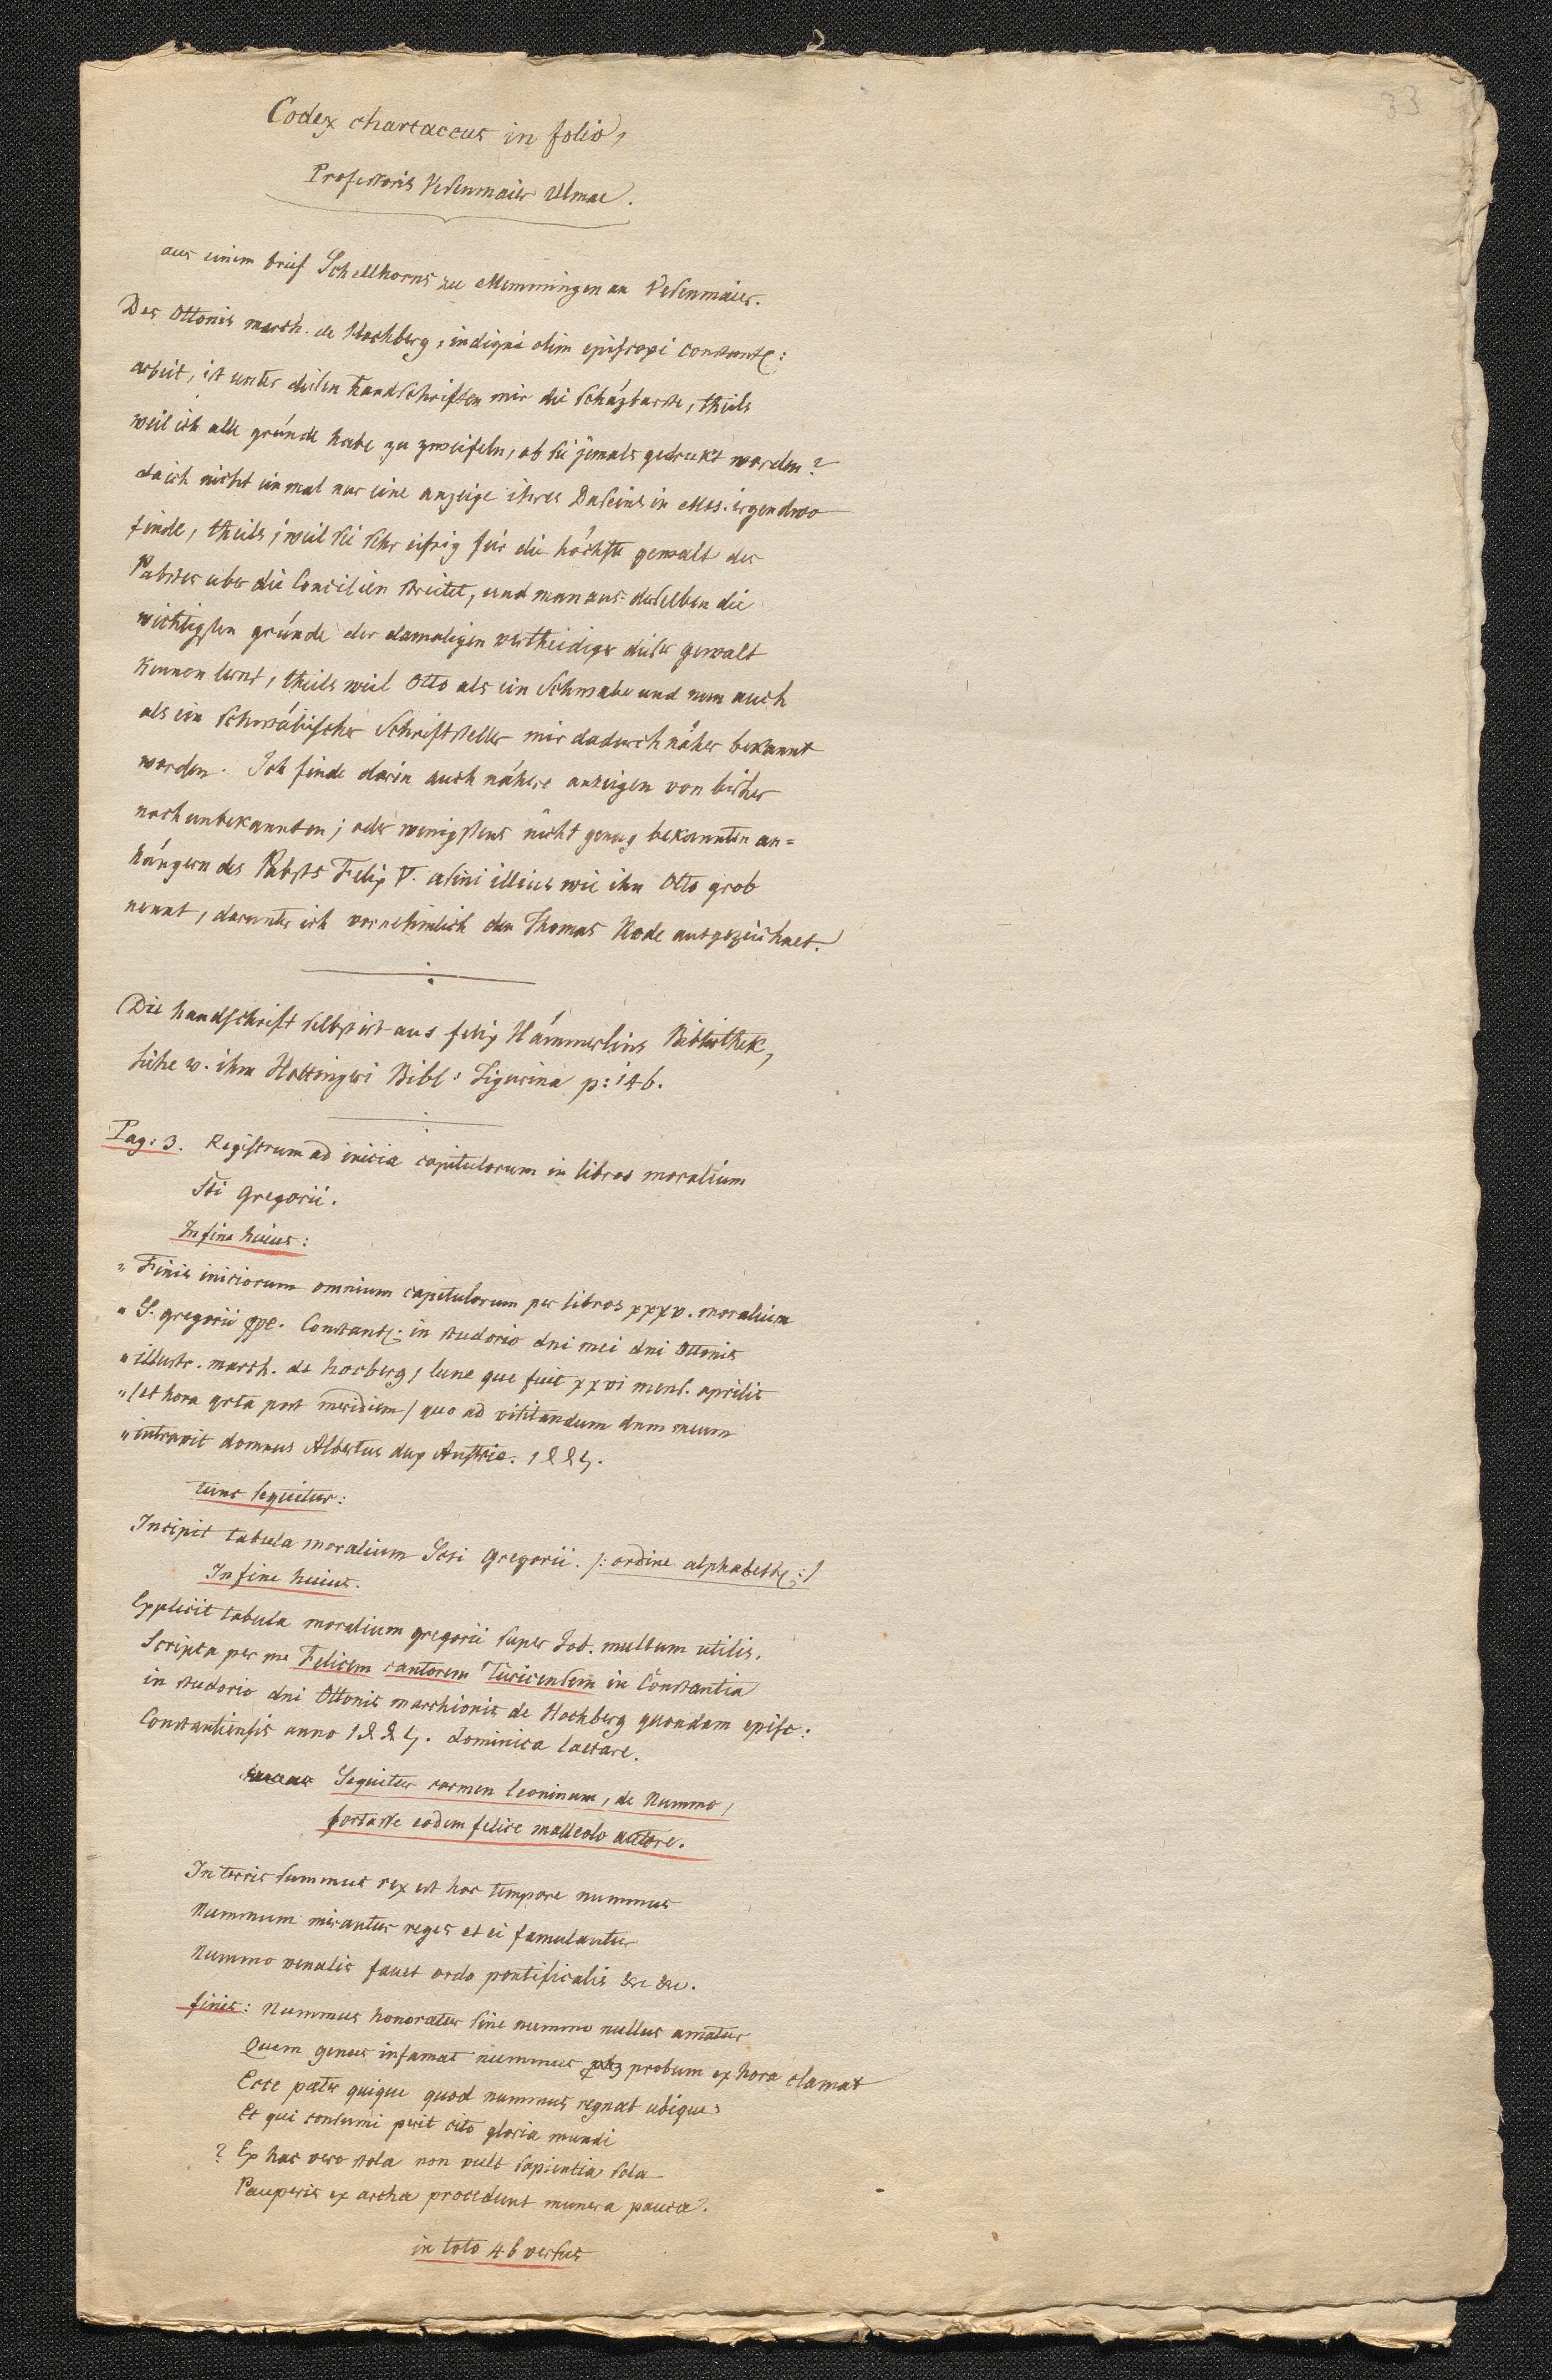 33
Codex chartaceus in folio,
Professoris Vesenmaier Ulmae.
aus einem brief Schellhorns zu Memmingen an Vesenmaier.
Des Ottonis march. de Hochberg, indigni olim episcopi constant:
arbeit, ist unter diesen handschriften mir die schäzbarste, theils
weil ich alle gründe habe zu zweifeln, ob sie jemals gedrukt worden?
da ich nicht einmal nur eine anzeige ihres Daseins in Mss. irgendwo
finde, theils, weil sie sehr eifrig für die höchste gewalt des
Pabstes uber die Concilien streitet, und man aus derselben die
wichtigsten gründe der damaligen vertheidiger dieser gewalt
kennen lernt, theils weil Otto als ein Schwabe und nun auch
als ein schwäbischer Schriftsteller mir dadurch näher bekannt
worden. Ich finde darin auch nähere anzeigen von bisher
noch unbekannten; oder wenigstens nicht genug bekannten an=
hängern des Pabsts Felix V. asini illius wie ihn Otto grob
nennt, darunter ich vornehmlich den Thomas Rode ausgezeichnet.
Die handschrift selbst ist aus felix Hämmerlins Bibliothek,
siehe v. ihm Hottingeri Bibl: Tigurina p: 146.
Pag: 3. Registrum ad inicia capitulorum in libros moralium
Sti Gregorii.
In fine huius:
" Finis iniciorum omnium capitulorum per libros xxxv. moralium
" S. gregorii ppe. Constant: in studorio dni mei dni Ottonis
" illustr. march. de hocberg, lune que fuit xxvi mens. aprilis
" /et hora qrta post meridiem/ quo ad visitandum dnm meum
" intravit domnus Albertus dux Austrie. 1445.
tunc sequitur:
Incipit tabula moralium Scti Gregorii. /: ordine alphabeth: /
In fine huius.
Explicit tabula moralium gregorii super Job. multum utilis.
Scripta per me Felicem cantorem Turicensem in Constantia
in studorio dni Ottonis marchionis de Hochberg quondam episc:
Constantiensis anno 1445. dominica laetare.
Sequitur carmen leoninum, de Nummo,
fortasse eodem felice malleolo autore.
In terris summus rex est hoc tempore nummus
Nummum mirantur reges et ei famulantur
Nummo venalis favet ordo pontificalis &c &c.
finis: Nummus honoratur sine nummo nullus amatur
Quem genus infamat nummus probum ex hora clamat
Ecce patet quique quod nummus regnat ubique
Et qui consumi perit cito gloria mundi
? Ex hac vero stola non vult sapientia sola
Pauperis ex archa procedunt munera pauca.
in toto 46 versus